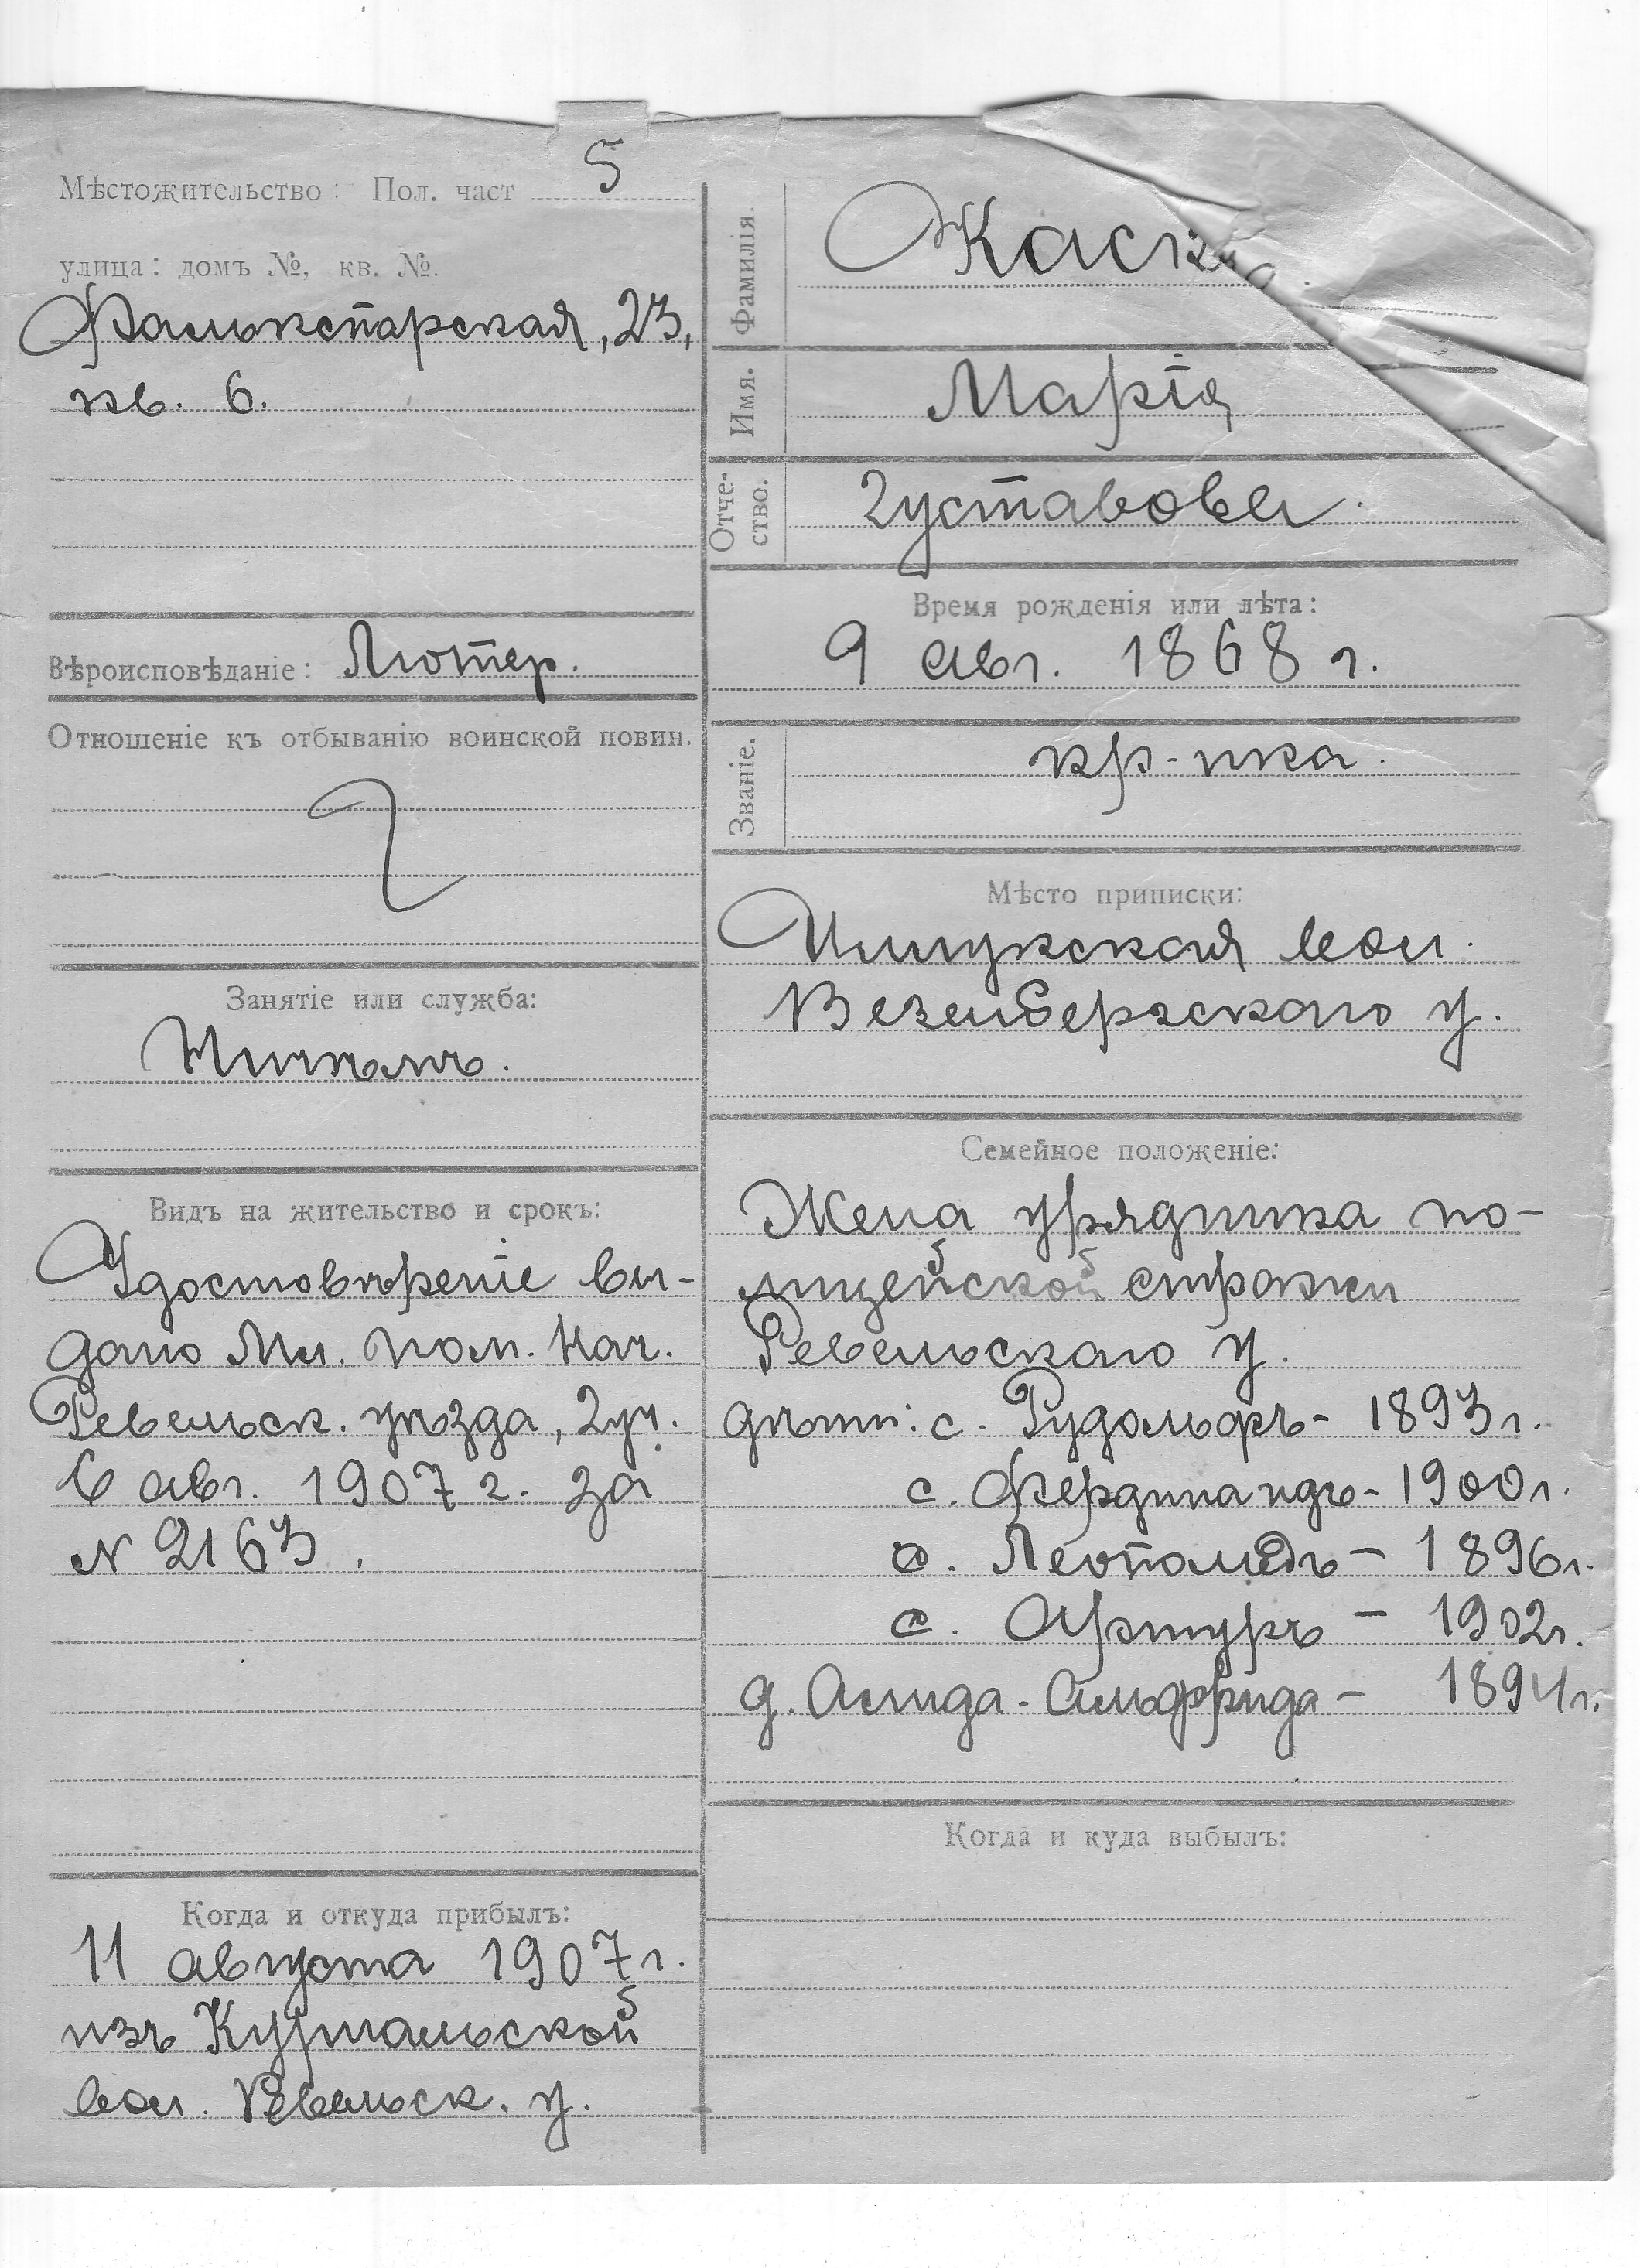 Мѣстожительство: Пол. част 5
улица: домъ №, кв. №.
Фалькспарская, 23,
кв. 6.
Вѣроисповѣданіе: Лютер.
Отношеніе къ отбыванію воинской повин.
Занятіе или служба:
Видъ на жительство и срокъ:
Удостовѣреніе вы-
дано Мл. пом. Нач.
Ревельск. уѣзда, 2 уч.
6 авг. 1907 г. за
№ 2163.
Когда и откуда прибылъ:
11 августа 1907 г.
изъ Курнальской
вол. Ревельск. у.
Фамилія.
Имя. Марія
Отче-
ство. Густавова
Время рожденія или лѣта:
9 авг. 1868 г.
Званіе. кр-нка.
Мѣсто приписки:
вол.
Везенбергскаго у.
Семейное положеніе:
Жена урядника по-
лицейской стражи
Ревельскаго у.
дѣти: с. Рудольфъ - 1893 г.
с. Фердинандъ - 1900 г.
с. Леопольдъ - 1896 г.
с. Артуръ - 1902 г.
д. Альфрида - 1894 г.
Когда и куда выбылъ: